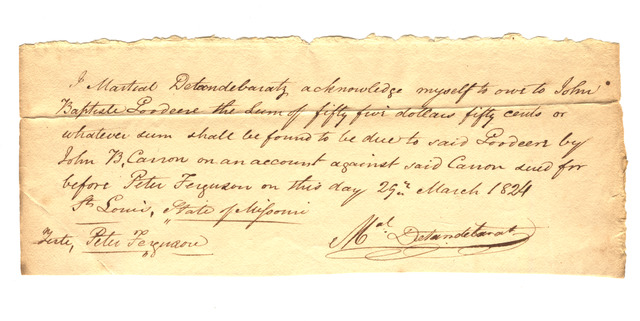 I Martial Detandebaratz acknowledge myself to owe to John
Baptiste Poodeen the Sum of fifty five dollars fifty cents or
whatever sum shall be found to be due to said Poodeen by
John B. Carron on an account against said Carron sued for
before Peter Ferguson on this day 29th March 1824
St. Louis, State of Missouri
Teste, Peter Ferguson
Mal. Detandebarat